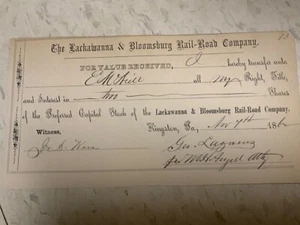 The Lackawanna & Bloomsburg Rail-Road Company.
FOR VALUE RECEIVED, I hereby transfer unto
E. M. all my Right, Title,
and Interest in two Shares
of the Preferred Capital Stock of the Lackawanna & Bloomsburg Rail-Road Company.
Kingston, Pa, Nov 7th 186
Witness,
Geo.
for Atty